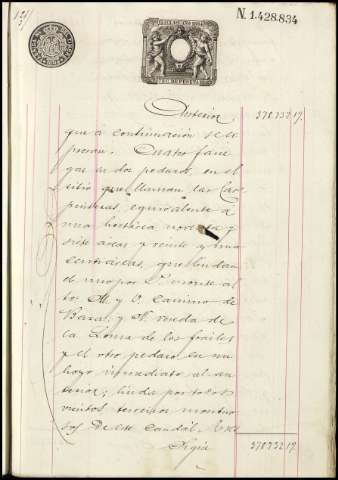 N. 1.428.834
Anterior 570732 17
que á continuacion se es
presan. Cuatro fane
gas en dos pedazos, en el
sitio que llaman las Car
pinteras, equivalente á
una hectárea noventa y
siete areas y veinte y una
centiáreas, que lindan
el uno por S. monte al
to; M. y O. camino de
Baza, y N. vereda de
la Loma de los frailes
y el otro pedazo en un
hoyo inmediato al an
terior; linda por todos
vientos, terrenos montuo
sos. De este caudal.
Sigue 570732 17